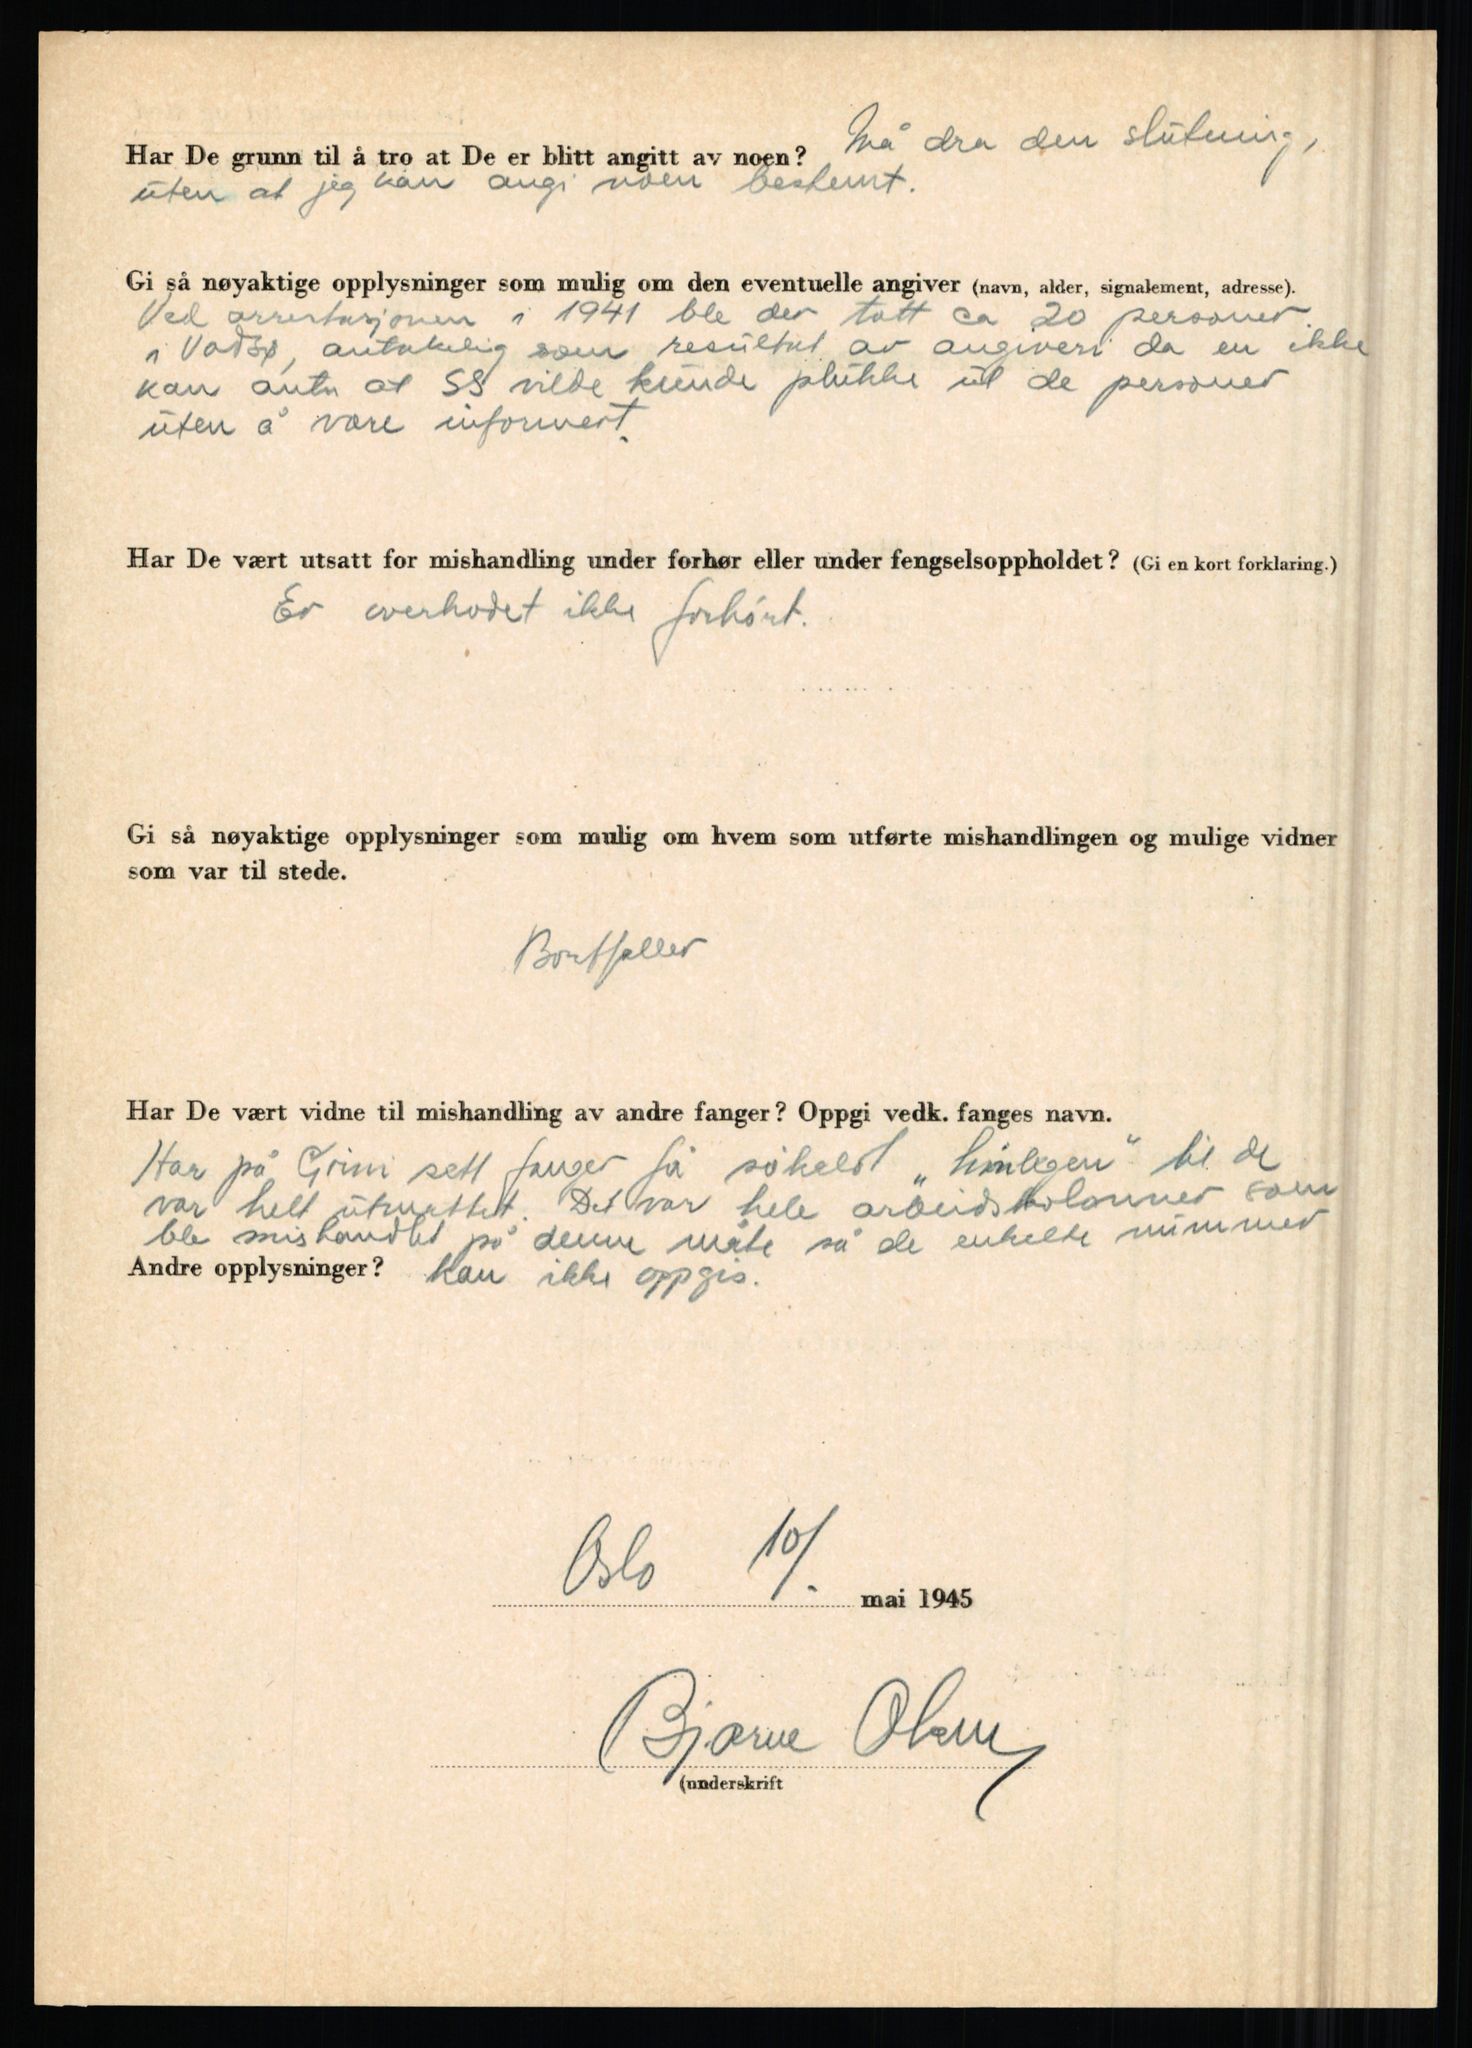 Har De grunn til å tro at De er blitt angitt av noen? Må dra den slutning,
uten at jeg kan angi noen bestemt.
Gi så nøyaktige opplysninger som mulig om den eventuelle angiver (navn, alder, signalement, adresse).
Ved arrestasjonen i 1941 ble der tatt ca 20 personer
i Vadsø, antakelig som resultat av angiveri da en ikke
kan anta at SS vilde kunde plukke ut de personer
uten å være informert.
Har De vært utsatt for mishandling under forhør eller under fengselsoppholdet? (Gi en kort forklaring.)
Er overhodet ikke forhørt.
Gi så nøyaktige opplysninger som mulig om hvem som utførte mishandlingen og mulige vidner
som var til stede.
Bortfaller
Har De vært vidne til mishandling av andre fanger? Oppgi vedk. fanges navn.
Har på Grini sett fanger få såkalt „hinlegen" til de
var helt utmattet. Det var hele arbeidskolonner som
ble mishandlet på denne måte så de enkelte nummer
Andre opplysninger? kan ikke oppgis.
Oslo 10/. mai 1945
Bjarne Olsen
(underskrift